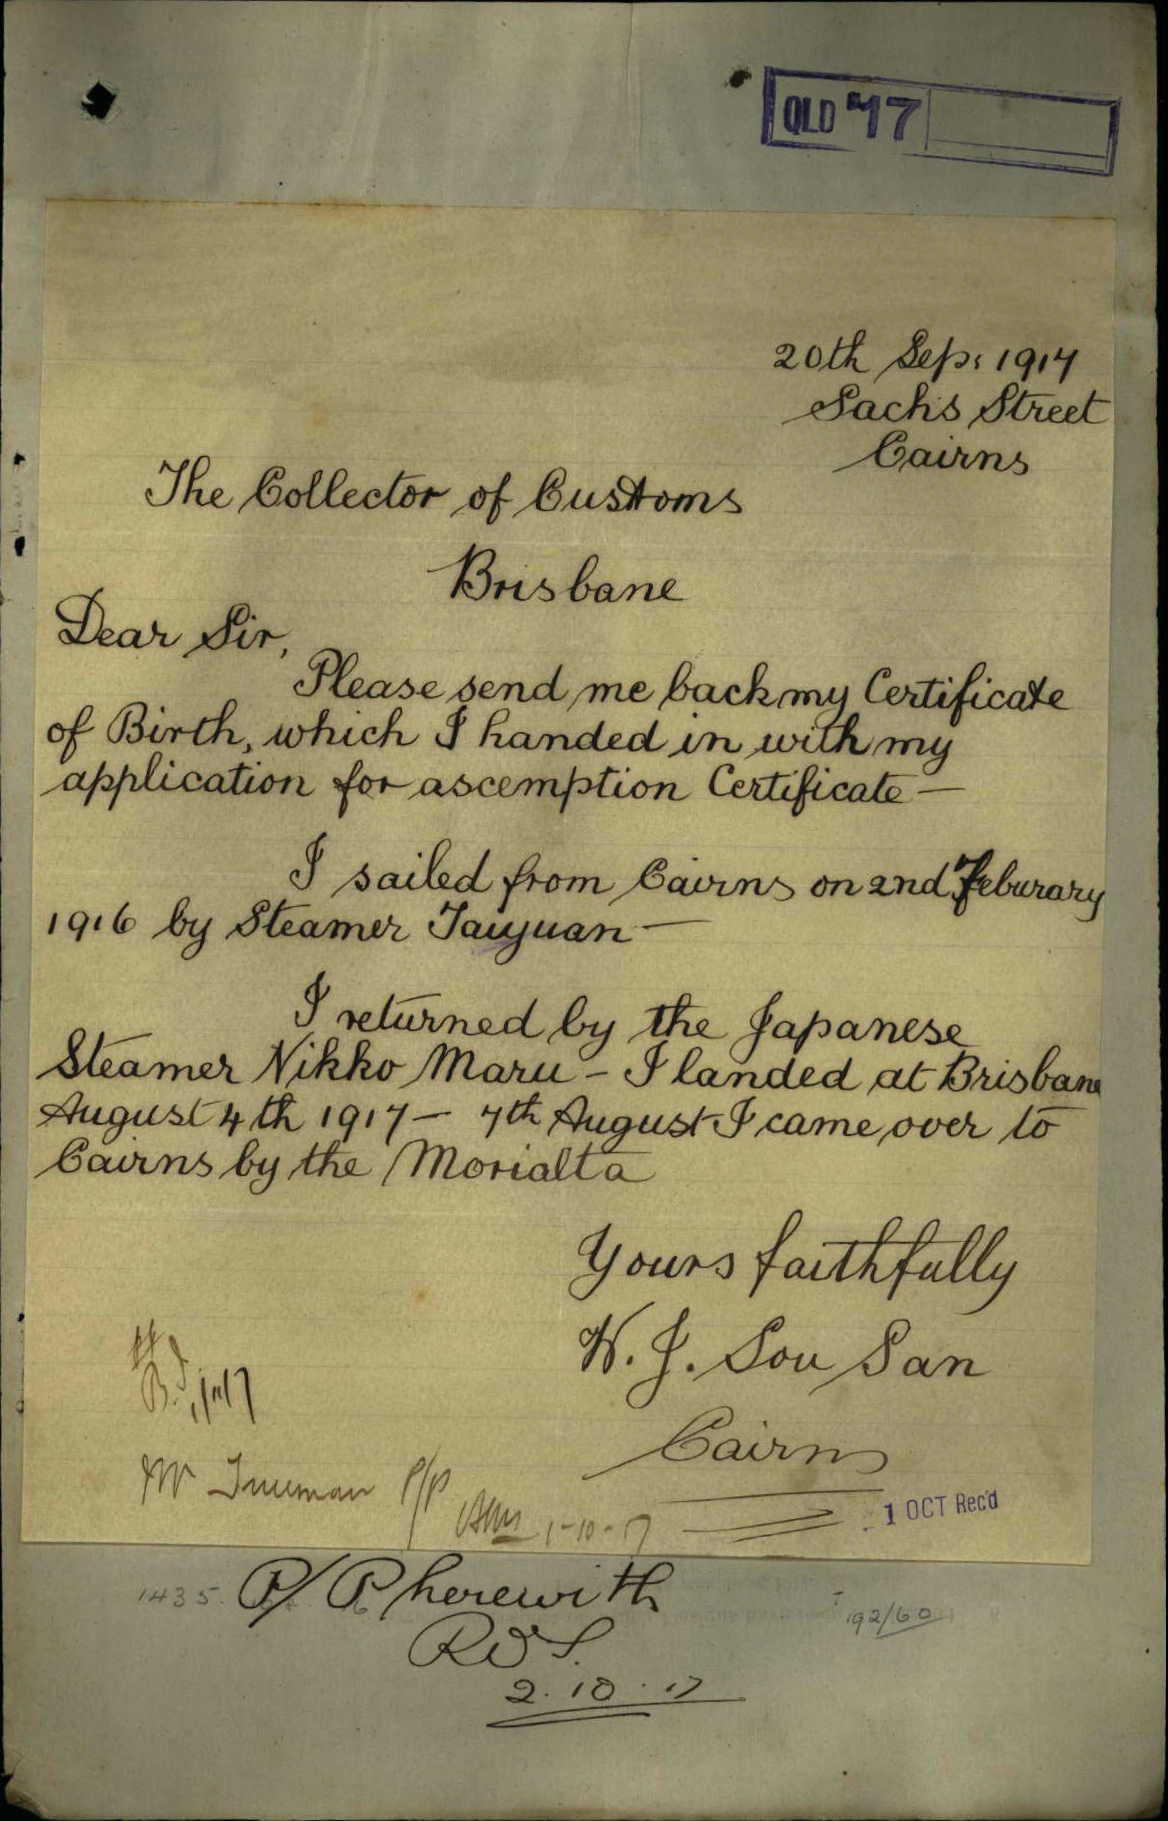 QLD 17
20th Sep: 1917
Sachs Street
Cairns
The Collector of Customs
Brisbane
Dear Sir,
Please send me back my Certificate
of Birth, which I handed in with my
application for ascemption Certificate—
I sailed from Cairns on 2nd Feburary
1916 by Steamer Taiyuan—
I returned by the Japanese
Steamer Nikko Maru – I landed at Brisbane
August 4th 1917 – 7th August I came over to
Cairns by the Morialta
Yours faithfully
W. J. Sou San
Cairns
Mr Trueman P/P
1-10-17
1 OCT Rec'd
1435. P/P herewith
192/60
2.10.17